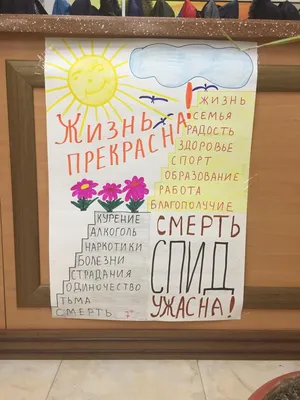 ЖИЗНЬ
ПРЕКРАСНА!
ЖИЗНЬ
СЕМЬЯ
РАДОСТЬ
ЗДОРОВЬЕ
СПОРТ
ОБРАЗОВАНИЕ
РАБОТА
БЛАГОПОЛУЧИЕ
КУРЕНИЕ
АЛКОГОЛЬ
НАРКОТИКИ
БОЛЕЗНИ
СТРАДАНИЯ
ОДИНОЧЕСТВО
ТЬМА
СМЕРТЬ
СМЕРТЬ
СПИД
УЖАСНА!